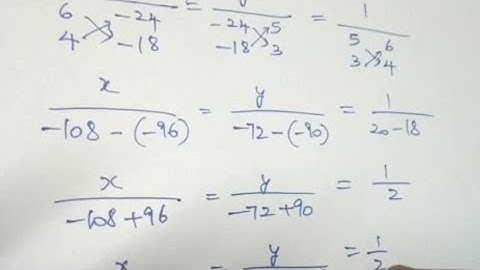 6 -24 = y / -24 5 = 1 / 5 6
4 -18 -18 3 3 4
x / -108 - (-96) = y / -72 - (-90) = 1 / 20 - 18
x / -108 + 96 = y / -72 + 90 = 1 / 2
x = y = 1 / 2